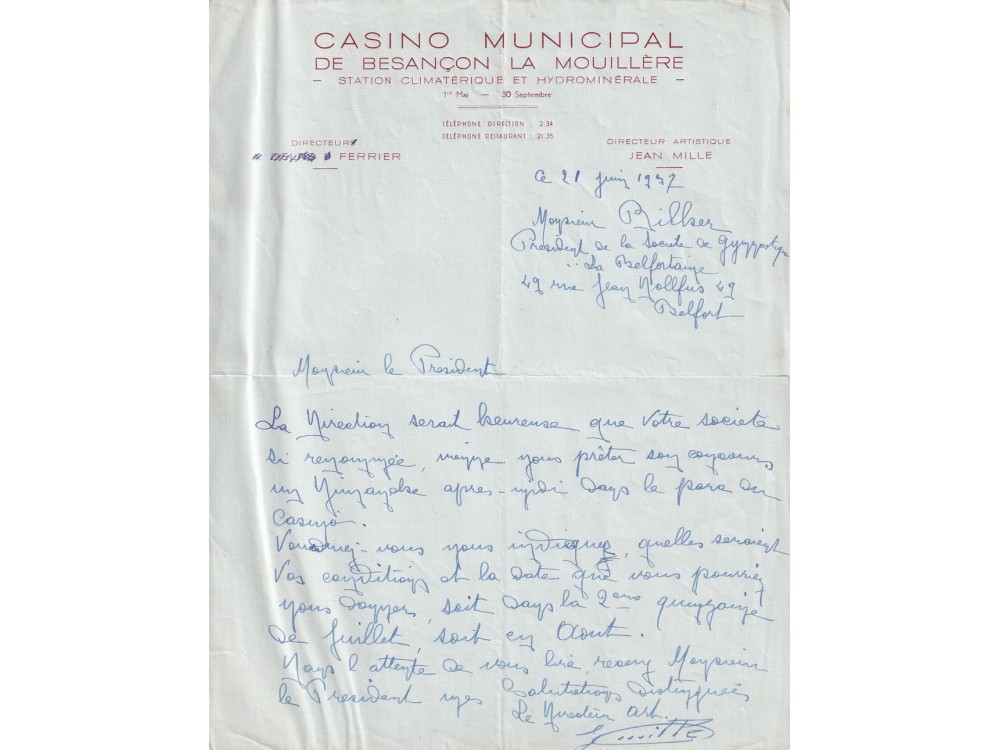 CASINO MUNICIPAL
DE BESANÇON LA MOUILLÈRE
— STATION CLIMATÉRIQUE ET HYDROMINÉRALE —
1er Mai — 30 Septembre
TÉLÉPHONE DIRECTION : 2.34
TÉLÉPHONE RESTAURANT : 21.35
DIRECTEUR
FERRIER
DIRECTEUR ARTISTIQUE
JEAN MILLE
Ce 21 juin 1937
Monsieur
Président de la Societe de Gymnastique
"La Belfortaine
49 rue Jean Dollfus 49
Belfort
Monsieur le President
La Direction serait heureuse que Votre societe
si renommée, vienne nous prêter son concours
un Dimanche apres-midi dans le parc du
Casino.
Voudriez-vous nous indiquez, quelles seraient
Vos conditions et la date que vous pourriez
nous donner, soit dans la 2eme quinzaine
de Juillet, soit en Aout.
Dans l'attente de vous lire recevez Monsieur
le President mes Salutations Distinguées
Le Directeur art.
JMille